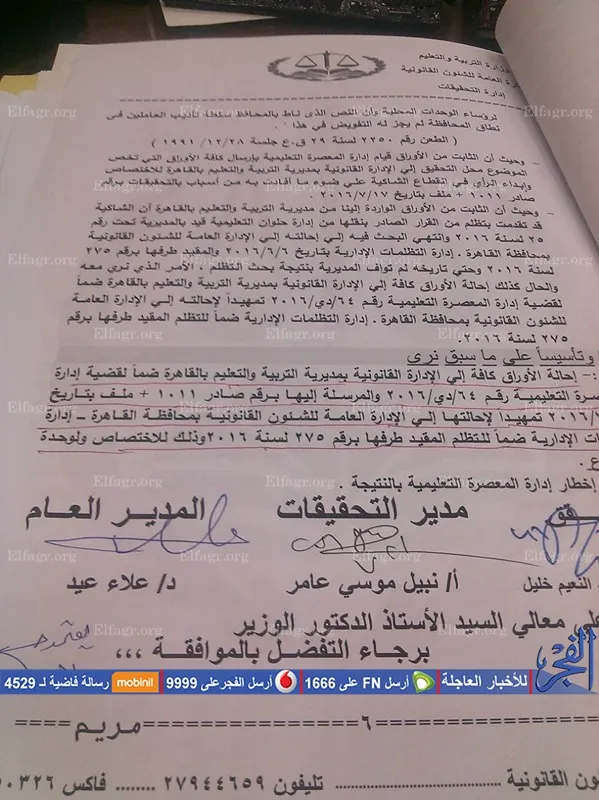 وزارة التربية والتعليم
العامة للشئون القانونية
إدارة التحقيقات
لرؤساء الوحدات المحلية وأن النص الذى ناط بالمحافظ سلطة تأديب العاملين فى
نطاق المحافظة لم يجز له التفويض في هذا .
( الطعن رقم ٢٢٥٠ لسنة ٢٩ ق.ع جلسة ١٩٩١/١٢/٢٨ )
- وحيث أن الثابت من الأوراق قيام إدارة المعصرة التعليمية بإرسال كافة الأوراق التي تخص
الموضوع محل التحقيق إلي الإدارة القانونية بمديرية التربية والتعليم بالقاهرة للاختصاص
وإبداء الرأي في انقطاع الشاكية علي ضوء ما أفادت به من أسباب بالتحقيقات برقم
صادر ١٠١١ + ملف بتاريخ ٢٠١٦/٧/١٧ .
- وحيث أن الثابت من الأوراق الواردة إلينا من مديرية التربية والتعليم بالقاهرة أن الشاكية
قد تقدمت بتظلم من القرار الصادر بنقلها من إدارة حلوان التعليمية قيد بالمديرية تحت رقم
٢٥ لسنة ٢٠١٦ وانتهي البحث فيه إلي إحالته إلي الإدارة العامة للشئون القانونية
بمحافظة القاهرة . إدارة التظلمات الإدارية بتاريخ ٢٠١٦/٦/٦ والمقيد طرفها برقم ٢٧٥
لسنة ٢٠١٦ وحتي تاريخه لم تواف المديرية بنتيجة بحث التظلم ، الأمر الذي نري معه
والحال كذلك إحالة الأوراق كافة إلي الإدارة القانونية بمديرية التربية والتعليم بالقاهرة ضماً
لقضية إدارة المعصرة التعليمية رقم ٦٤/دي/٢٠١٦ تمهيداً لإحالته إلي الإدارة العامة
للشئون القانونية بمحافظة القاهرة . إدارة التظلمات الإدارية ضماً للتظلم المقيد طرفها برقم
٢٧٥ لسنة ٢٠١٦.
وتأسيساً علي ما سبق نري
:- إحالة الأوراق كافة إلي الإدارة القانونية بمديرية التربية والتعليم بالقاهرة ضماً لقضية إدارة
صرة التعليمية رقم ٦٤/دي/٢٠١٦ والمرسلة إليها برقم صادر ١٠١١ + ملف بتاريخ
٢٠١٦/٧ تمهيداً لإحالتها إلي الإدارة العامة للشئون القانونية بمحافظة القاهرة – إدارة
ات الإدارية ضماً للتظلم المقيد طرفها برقم ٢٧٥ لسنة ٢٠١٦ وذلك للاختصاص ولوحدة
ع .
إخطار إدارة المعصرة التعليمية بالنتيجة .
فق مدير التحقيقات المدير العام
النعيم خليل أ/ نبيل موسي عامر د/ علاء عيد
علي معالي السيد الأستاذ الدكتور الوزير
برجاء التفضل بالموافقة ،،،
يعتمد
الفجر للأخبار العاجلة أرسل FN على 1666 أرسل الفجر على 9999 mobinil رسالة فاضية لـ 4529
====٦==== مريم ====
ون القانونية ........ تليفون ٢٧٩٤٤٦٥٩ ........ فاكس ٥٠٣٢٦
Elfagr.org